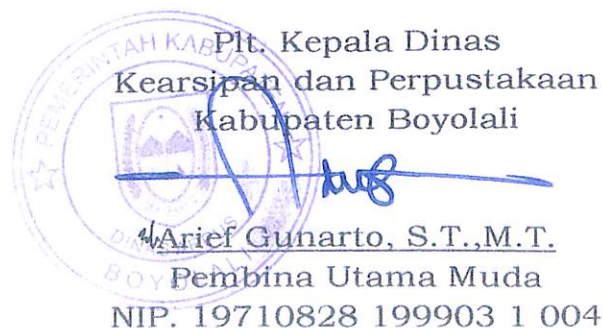 Plt. Kepala Dinas
Kearsipan dan Perpustakaan
Kabupaten Boyolali
Arief Gunarto, S.T.,M.T.
Pembina Utama Muda
NIP. 19710828 199903 1 004
PEMERINTAH KABUPATEN
BOYOLALI